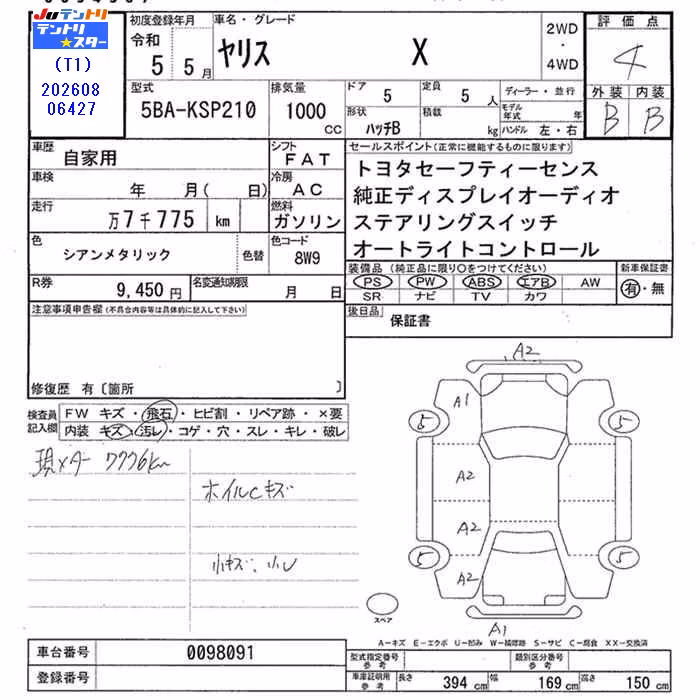 JUテントリ
テントリ★スター
(T1)
202608
06427
初度登録年月
令和
5 5月
車名・グレード
ヤリス X
2WD
・
4WD
評価点
4
外装 内装
B B
型式
5BA-KSP210
排気量
1000 CC
ドア 5
定員 5 人
形状 ハッチB
積載 kg
ディーラー・並行
モデル年式 年
ハンドル 左・右
車歴 自家用
シフト FAT
車検 年 月( 日)
冷房 AC
走行 万7千775 km
燃料 ガソリン
色 シアンメタリック 色替
色コード 8W9
R券 9,450円
名変通知期限 月 日
セールスポイント(正常に機能するものに限ります)
トヨタセーフティーセンス
純正ディスプレイオーディオ
ステアリングスイッチ
オートライトコントロール
装備品(純正品に限り○をつけてください)
新車保証書
PS PW ABS エアB AW
SR ナビ TV カワ
有・無
後日品 保証書
注意事項申告欄(不具合内容等は具体的に記入して下さい)
修復歴 有〔箇所 〕
検査員記入欄
FW キズ・飛石・ヒビ割・リペア跡・×要
内装 キズ・汚レ・コゲ・穴・スレ・キレ・破レ
現メーター 7776km
ホイルCキズ
小キズ、小U
A2
A1
5 5
A2
A2
5 5
A2
A1
スペア
A-キズ E-エクボ U-凹み W-補修跡 S-サビ C-腐食 XX-交換済
車台番号 0098091
登録番号
型式指定番号 参考
類別区分番号 参考
車庫証明用 参考
長さ 394 cm 幅 169 cm 高さ 150 cm